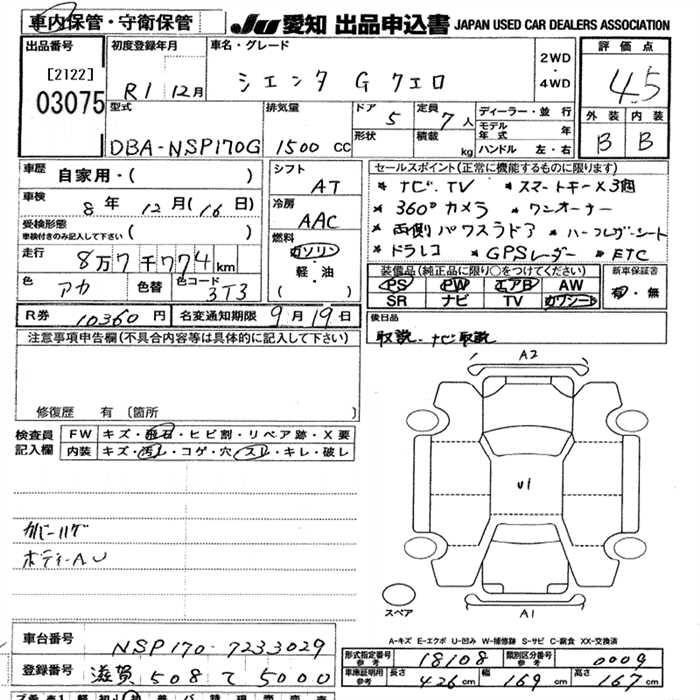 車内保管・守衛保管
JU 愛知 出品申込書 JAPAN USED CAR DEALERS ASSOCIATION
出品番号
[2122]
03075
初度登録年月
R1 12月
車名・グレード
シエンタ G クエロ
2WD
・
4WD
評価点
4.5
外装 内装
B B
型式
DBA-NSP170G
排気量
1500 CC
ドア
5
形状
定員
7 人
積載
kg
ディーラー・並行
モデル年式 年
ハンドル 左・右
車歴
自家用・( )
車検
8年 12月(16日)
受検形態
車検付きのみ記入して下さい ( )
走行
8万7千774km
色
アカ
色替
色コード
3T3
シフト
AT
冷房
AAC
燃料
ガソリン
・
軽・油
( )
セールスポイント(正常に機能するものに限ります)
* ナビ.TV * スマートキーX3個
* 360°カメラ * ワンオーナー
* 両側パワスラドア * ハーフレザーシート
* ドラレコ * GPSレーダー * ETC
装備品(純正品に限り○をつけてください)
PS PW エアB AW
SR ナビ TV カワシート
新車保証書
有・無
R券 10360円
名変通知期限 9月19日
後日品
取説.ナビ取説
注意事項申告欄(不具合内容等は具体的に記入して下さい)
修復歴 有 〔箇所
検査員
記入欄
FW キズ・飛石・ヒビ割・リペア跡・X要
内装 キズ・汚レ・コゲ・穴・スレ・キレ・破レ
ボディーAU
A2
U1
A1
スペア
A-キズ E-エクボ U-凹み W-補修跡 S-サビ C-腐食 XX-交換済
車台番号
NSP170-7233029
登録番号
滋賀 508 て 5000
形式指定番号
参考
18108
類別区分番号
参考
0009
車庫証明用
参考
長さ 426cm 幅 169cm 高さ 167cm